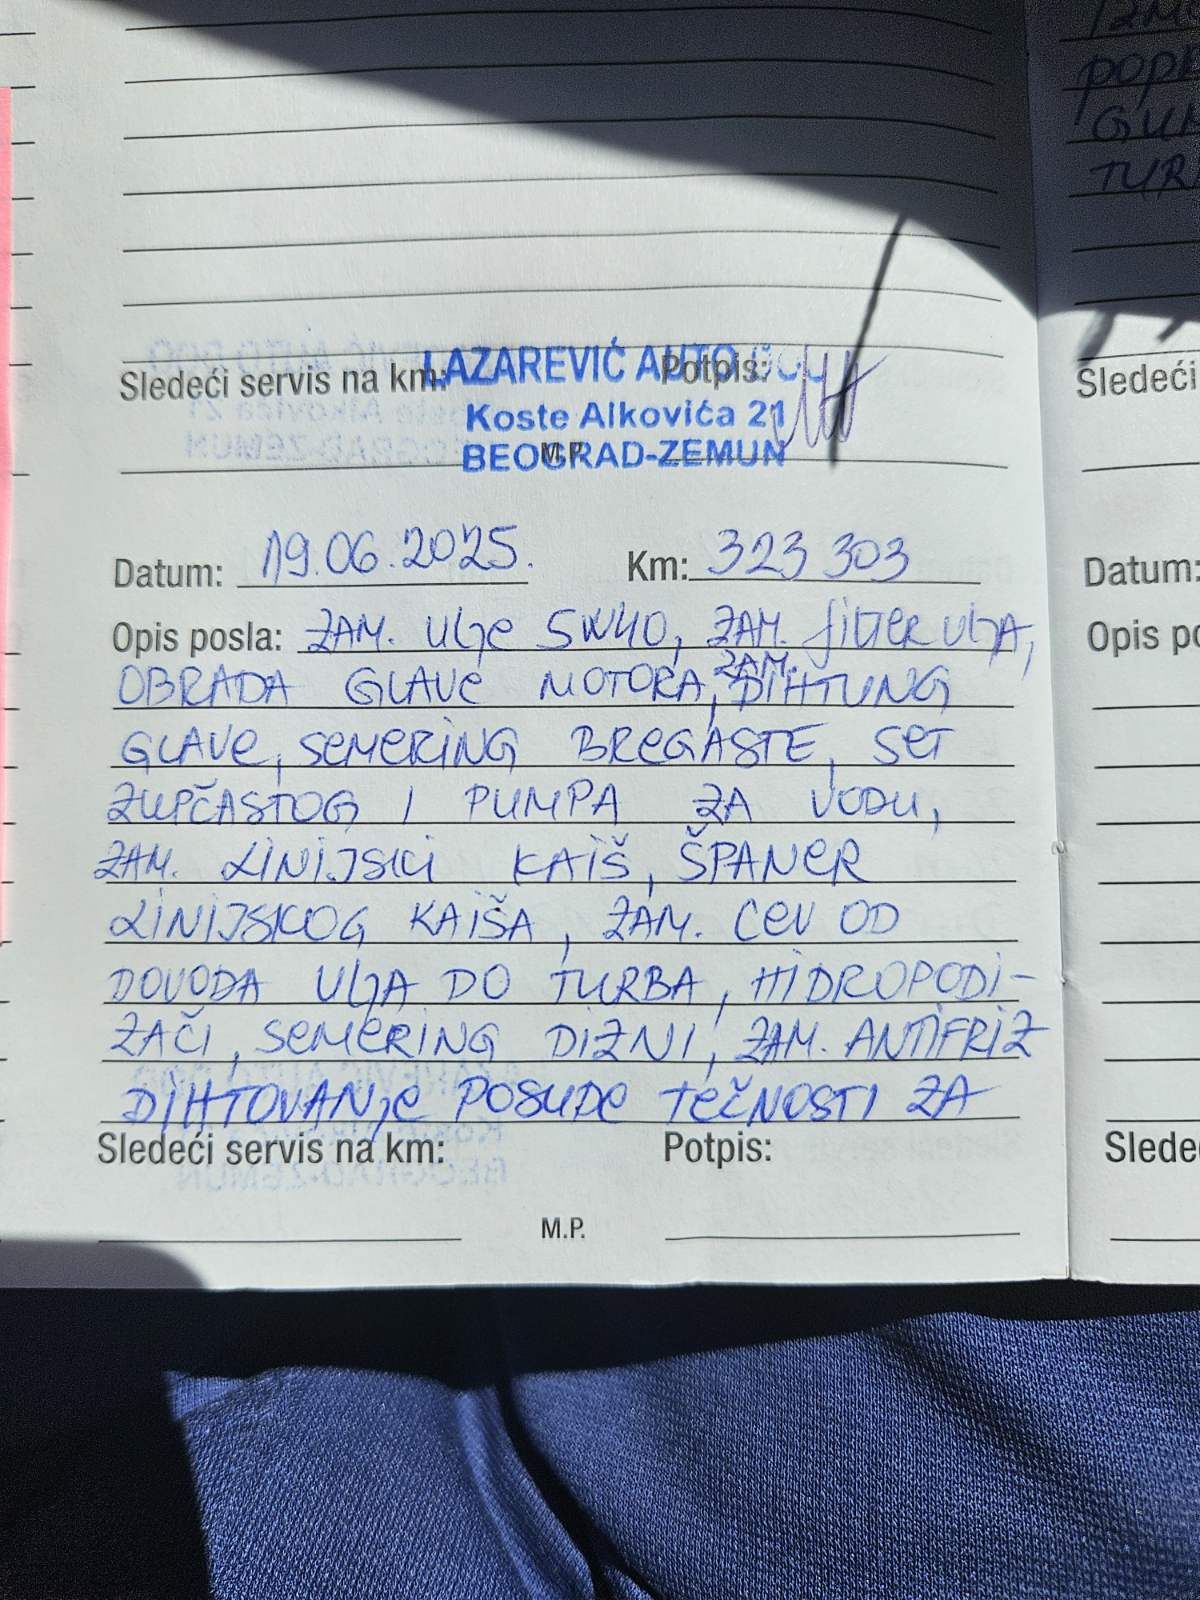 Sledeći servis na km:
Potpis:
LAZAREVIĆ AUTO
Koste Alkovića 21
M.P.
BEOGRAD-ZEMUN
Datum: 19.06.2025. Km: 323 303
Opis posla: ZAM. ULJE 5W40, ZAM. FILTER ULJA,
OBRADA GLAVE MOTORA, ZAM. DIHTUNG
GLAVE, SEMERING BREGASTE, SET
ZUPČASTOG I PUMPA ZA VODU,
ZAM. LINIJSKI KAIŠ, ŠPANER
LINIJSKOG KAIŠA, ZAM. CEV OD
DOVODA ULJA DO TURBA, HIDROPODI-
ZAČI, SEMERING DIZNI, ZAM. ANTIFRIZ
DIHTOVANJE POSUDE TEČNOSTI ZA
Sledeći servis na km: Potpis:
M.P.
TUR
Sledeći
Datum:
Opis po
Slede